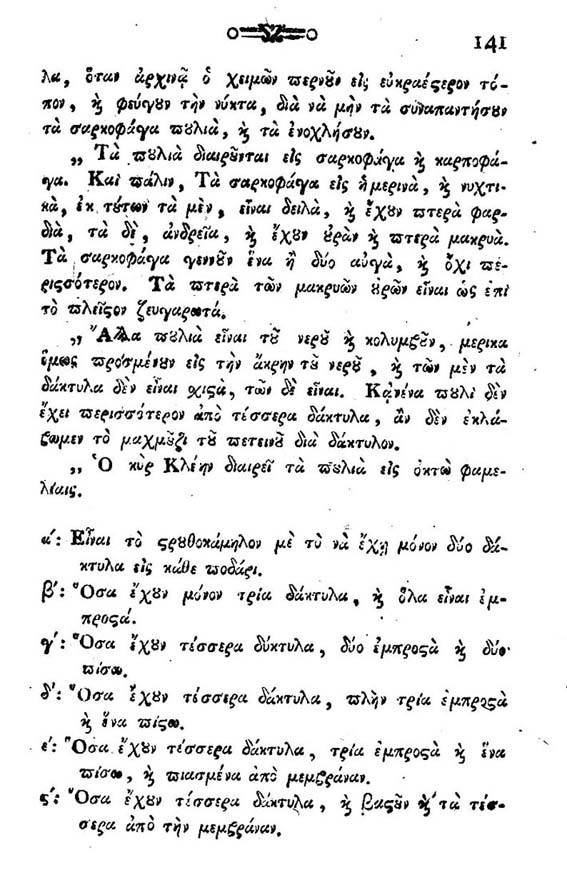 141
λα, ὅταν ἀρχινᾷ ὁ χειμὼν περνοῦν εἰς εὐκραέςερον τό-
πον, ϗ φεύγουν τὴν νύκτα, διὰ νὰ μὴν τὰ συναπαντήσουν
τὰ σαρκοφάγα πουλιὰ, ϗ τὰ ἐνοχλήσουν.
„ Τὰ πουλιὰ διαιροῦνται εἰς σαρκοφάγα ϗ καρποφά-
γα. Καὶ πάλιν, Τὰ σαρκοφάγα εἰς ἡμερινὰ, ϗ νυχτι-
κὰ, ἐκ τούτων τὰ μὲν, εἶναι δειλὰ, ϗ ἔχουν πτερὰ φαρ-
διὰ, τὰ δὲ, ἀνδρεῖα, ϗ ἔχουν οὐρὰν ϗ πτερὰ μακρυά.
Τὰ σαρκοφάγα γεννοῦν ἕνα ἢ δύο αὐγὰ, ϗ ὄχι πε-
ρισσότερον. Τὰ πτερὰ τῶν μακρυῶν οὐρῶν εἶναι ὡς ἐπὶ
τὸ πλεῖςον ζευγαρωτά.
„ Ἄλλα πουλιὰ εἶναι τοῦ νεροῦ ϗ κολυμβοῦν, μερικα
ὅμως προσμένουν εἰς τὴν ἄκρην τοῦ νεροῦ, ϗ τῶν μὲν τὰ
δάκτυλα δὲν εἶναι χιςὰ, τῶν δὲ εἶναι. Κᾀνένα πουλὶ δὲν
ἔχει περισσότερον ἀπὸ τέσσερα δάκτυλα, ἂν δὲν ἐκλά-
βωμεν τὸ μαχμοῦζι τοῦ πετεινοῦ διὰ δάκτυλον.
„ Ὁ κὺρ Κλέην διαιρεῖ τὰ πουλιὰ εἰς ὀκτὼ φαμε-
λίαις.
α΄: Εἶναι τὸ ςρουθοκάμηλον μὲ τὸ νὰ ἔχῃ μόνον δύο δά-
κτυλα εἰς κάθε ποδάρι.
β΄: Ὅσα ἔχουν μόνον τρία δάκτυλα, ϗ ὅλα εἶναι ἐμ-
προςά.
γ΄: Ὅσα ἔχουν τέσσερα δάκτυλα, δύο ἐμπροςὰ ϗ δύο
πίσω.
δ΄: Ὅσα ἔχουν τέσσερα δάκτυλα, πλὴν τρία ἐμπροςὰ
ϗ ἕνα πίσω.
ε΄: Ὅσα ἔχουν τέσσερα δάκτυλα, τρία ἐμπροςὰ ϗ ἕνα
πίσω, ϗ πιασμένα ἀπὸ μεμβράναν.
ς΄: Ὅσα ἔχουν τέσσερα δάκτυλα, ϗ βαςοῦν ϗ τὰ τέσ-
σερα ἀπὸ τὴν μεμβράναν.